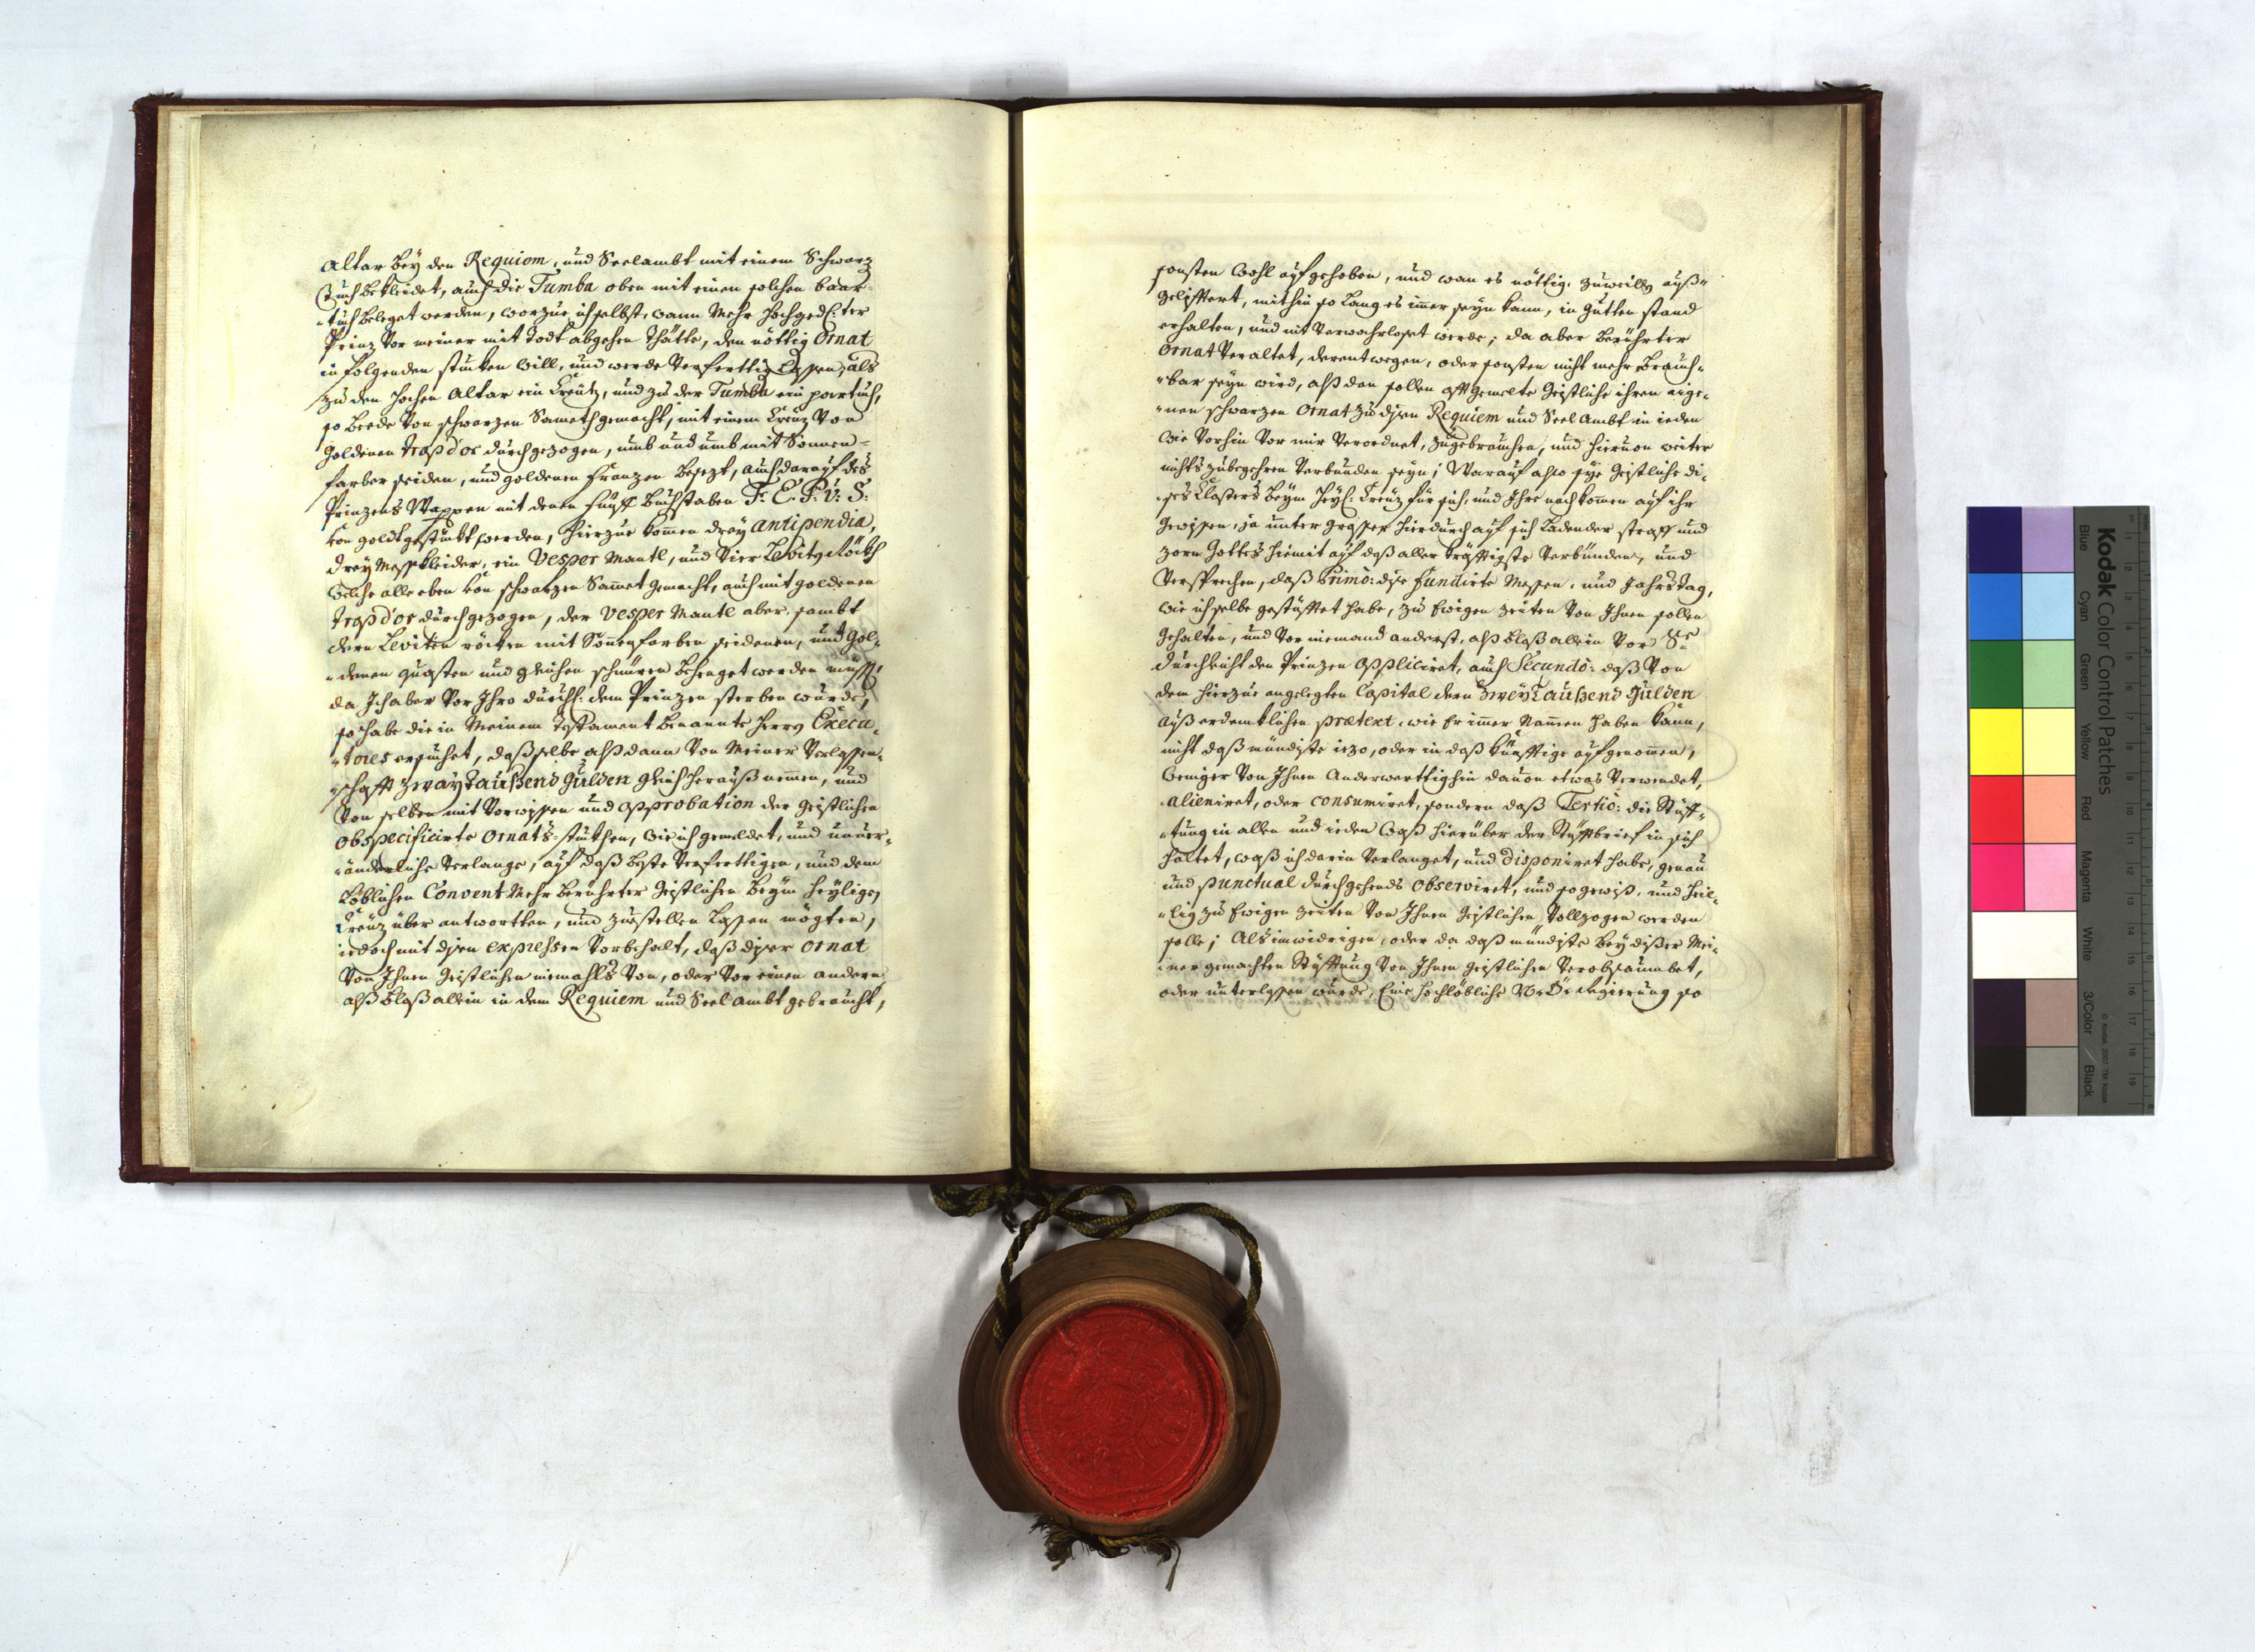 Altar bey den Requiem, und Seelambt mit einem Schwarz
Tuch bekleidet, auch die Tumba oben mit einen solchen baar
tuch beleget werden, worzue ich selbst, wann Mehr hochged: ter
Prinz vor meiner mit Todt abgehen thätte, den nöttig Ornat
in folgenden stucken will, und werde verferttig lassen; als
zu den hochen Altar ein Creütz, und zu der Tumba ein partuch,
so beede von schwarzen Sameth gemacht, mit einem Creuz von
goldenen trass d'or durchgezogen, umb und umb mit Sonnen-
farber seiden, und goldenen Franzen besezt, auch darauf des
Prinzens Wappen mit denen fünff buchstaben F. E. P. V. S:
von goldt gestickt werden, hierzue komen drey antipendia,
drey Messkleider, ein Vesper Mantl, und vier Levitn Röckh
welche alle eben von schwarzen Samet gemacht, auch mit goldenen
trass d'or durchgezogen, der Vesper Mantl aber, sambt
dern Leviten röcken mit Sonnenfarben seidenen, und gol-
denen quasten und gleichen schnüren behenget werden müss;
da Ich aber vor Ihro durchl: dem Prinzen sterben wurde,
so habe die in Meinem Testament benannte Herrn Execu-
tores ersuchet, daß selbe alß dann von Meiner Verlassen-
schafft zwaytaußend Gulden gleich herauß nemen, und
von selben mit vorwissen und approbation der Geistlichen
obspecificirte Ornats-stückhen, wie ich gemeldet, und unver-
änderliche verlange, auf daß beste verferttigen, und dem
Löblichen Convent Mehr berührter Geistlichen beym Heyligen
Creuz über antwortten, und zuestellen lassen mögten,
iedoch mit disen expressen vorbehalt, daß diser Ornat
von Ihnen Geistlichen niemahls von, oder vor einen andern,
alß bloß allein in dem Requiem und Seel Ambt gebraucht,
sonsten wohl aufgehoben, und wan es nöttig, zuweillen auß-
gelüfftert, mithin so lang es imer seyn kann, in gutten stand
erhalten, und nit verwahrloset werde; da aber berührter
Ornat veraltet, derentwegen, oder sonsten nicht mehr brauch-
bar seyn wird, alß dan sollen offt gemelte Geistliche ihren aige-
nen schwarzen Ornat zu disen Requiem und Seel Ambt in ieden
wie vorhin von mir verordnet, zugebrauchen, und hieruon weiter
nichts zubegehren verbunden seyn; Warauf also sye Geistliche di-
ses Closters beym Heyl: Creuz für sich, und Ihre nachkomen auf ihr
gewissen, ja unter grosser hierdurch auf sich ladender straff und
zorn Gottes hiemit auf daß aller kräfftigste verbünden, und
versprechen, daß Primo: dise fundirte Messen, und Jahrstag,
wie ich selbe gestüfftet habe, zu Ewigen zeiten von Ihnen sollen
gehalten, und vor niemand anderst, alß bloß allein vor Sr
durchleicht den Prinzen appliciret, auch Secundo: daß von
dem hierzue angelegten Capital dern Zweytaußend Gulden
auß erdencklichen prætext, wie Er imer Namen haben kann,
nicht daß mündiste iezo, oder in daß künfftige aufgenomen,
weniger von Ihnen Anderwerttighin dauon etwas verwendet,
alieniret, oder consumiret, sondern daß Tertio: die Stüff-
tung in allen und ieden waß hierüber der Stüfftbrief in sich
haltet, waß ich darin verlanget, und disponiret habe, genau
und punctual durchgehends observiret, und so gewiß, und heil-
lig zu Ewigen zeiten von Ihnen Geistlichen vollzogen werden
solle; Als im widrigen, oder da daß mündiste bey dißer Mei-
ner gemachten Stüfftung von Ihnen Geistlichen verobsaumbet,
oder unterlassen wurde, Eine Hochlöbliche N: Ö: Regierung so
Kodak Color Control Patches
Blue Cyan Green Yellow Red Magenta White 3/Color Black